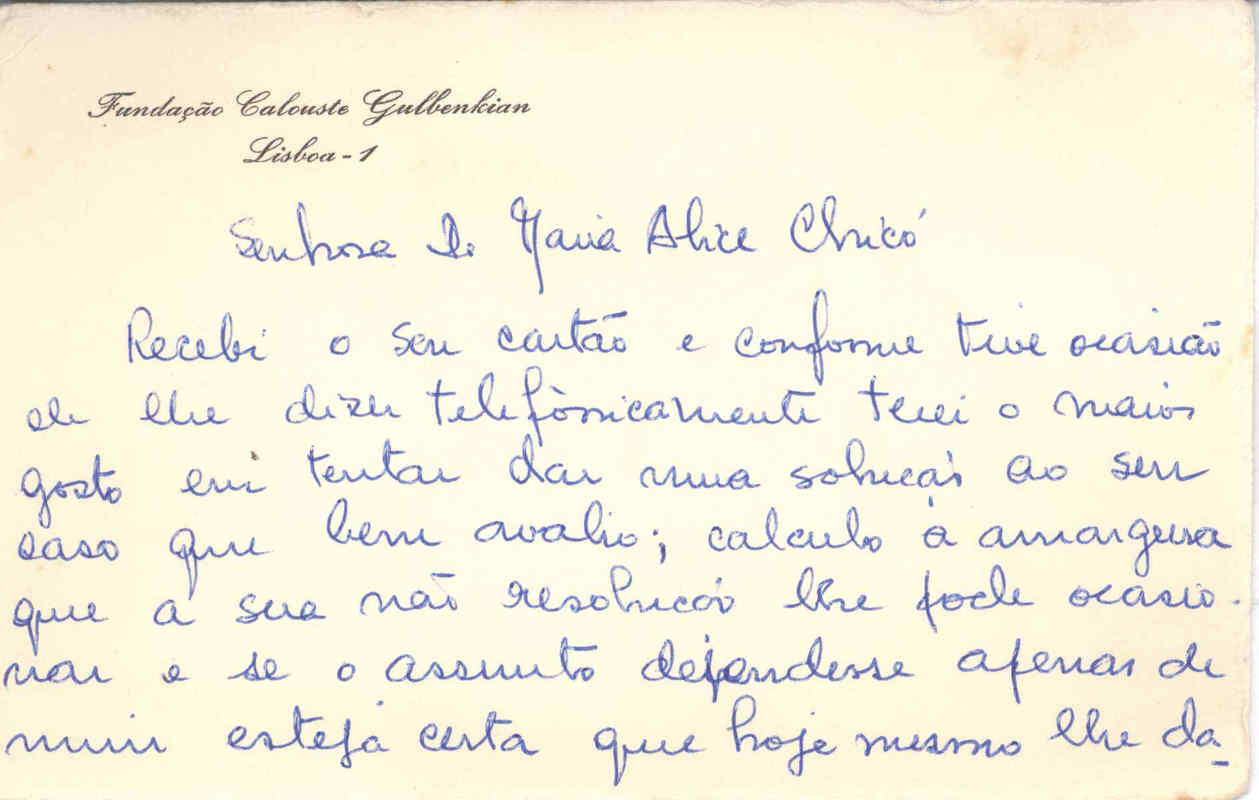 Fundação Calouste Gulbenkian
Lisboa - 1
Senhora D. Maria Alice Chicó
Recebi o seu cartão e conforme tive ocasião
de lhe dizer telefònicamente terei o maior
gosto em tentar dar uma solução ao seu
caso que bem avalio; calculo a amargura
que a sua não resolução lhe pode ocasio-
nar e se o assunto dependesse apenas de
mim esteja certa que hoje mesmo lhe da-